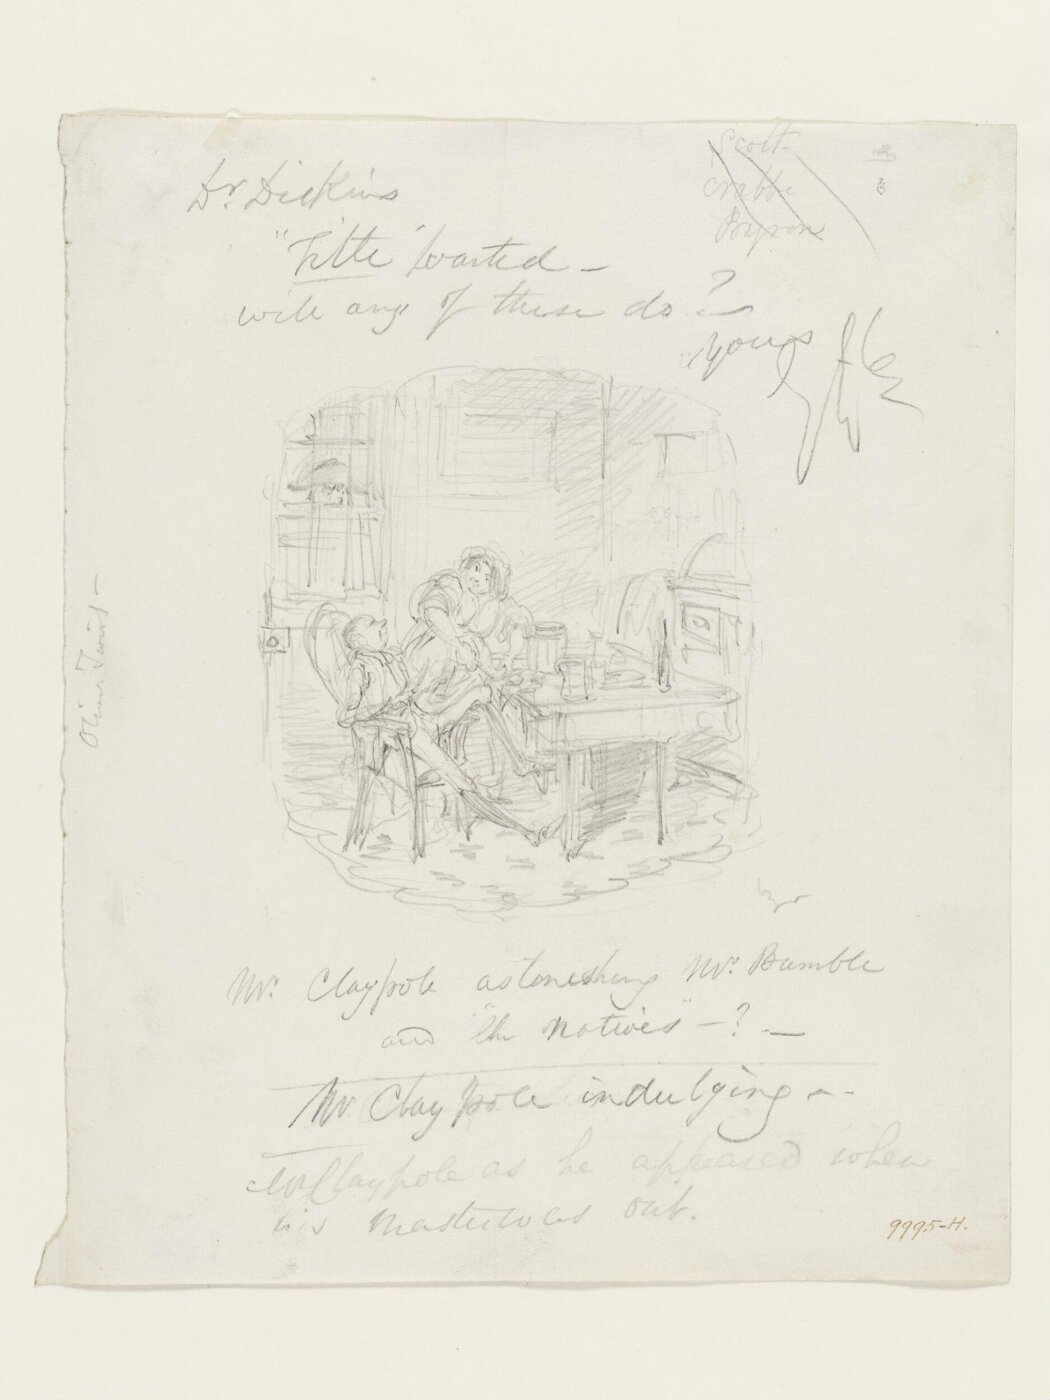 Scott
Crabbe
Byron
Dr. Dickins
"Title" wanted —
will any of these do?
Yours
Oliver Twist —
Mr. Claypole astonishing Mr. Bumble
and "the natives" — ? —
Mr Claypole indulging —
Mr Claypole as he appeared when
his master was out.
9995-H.